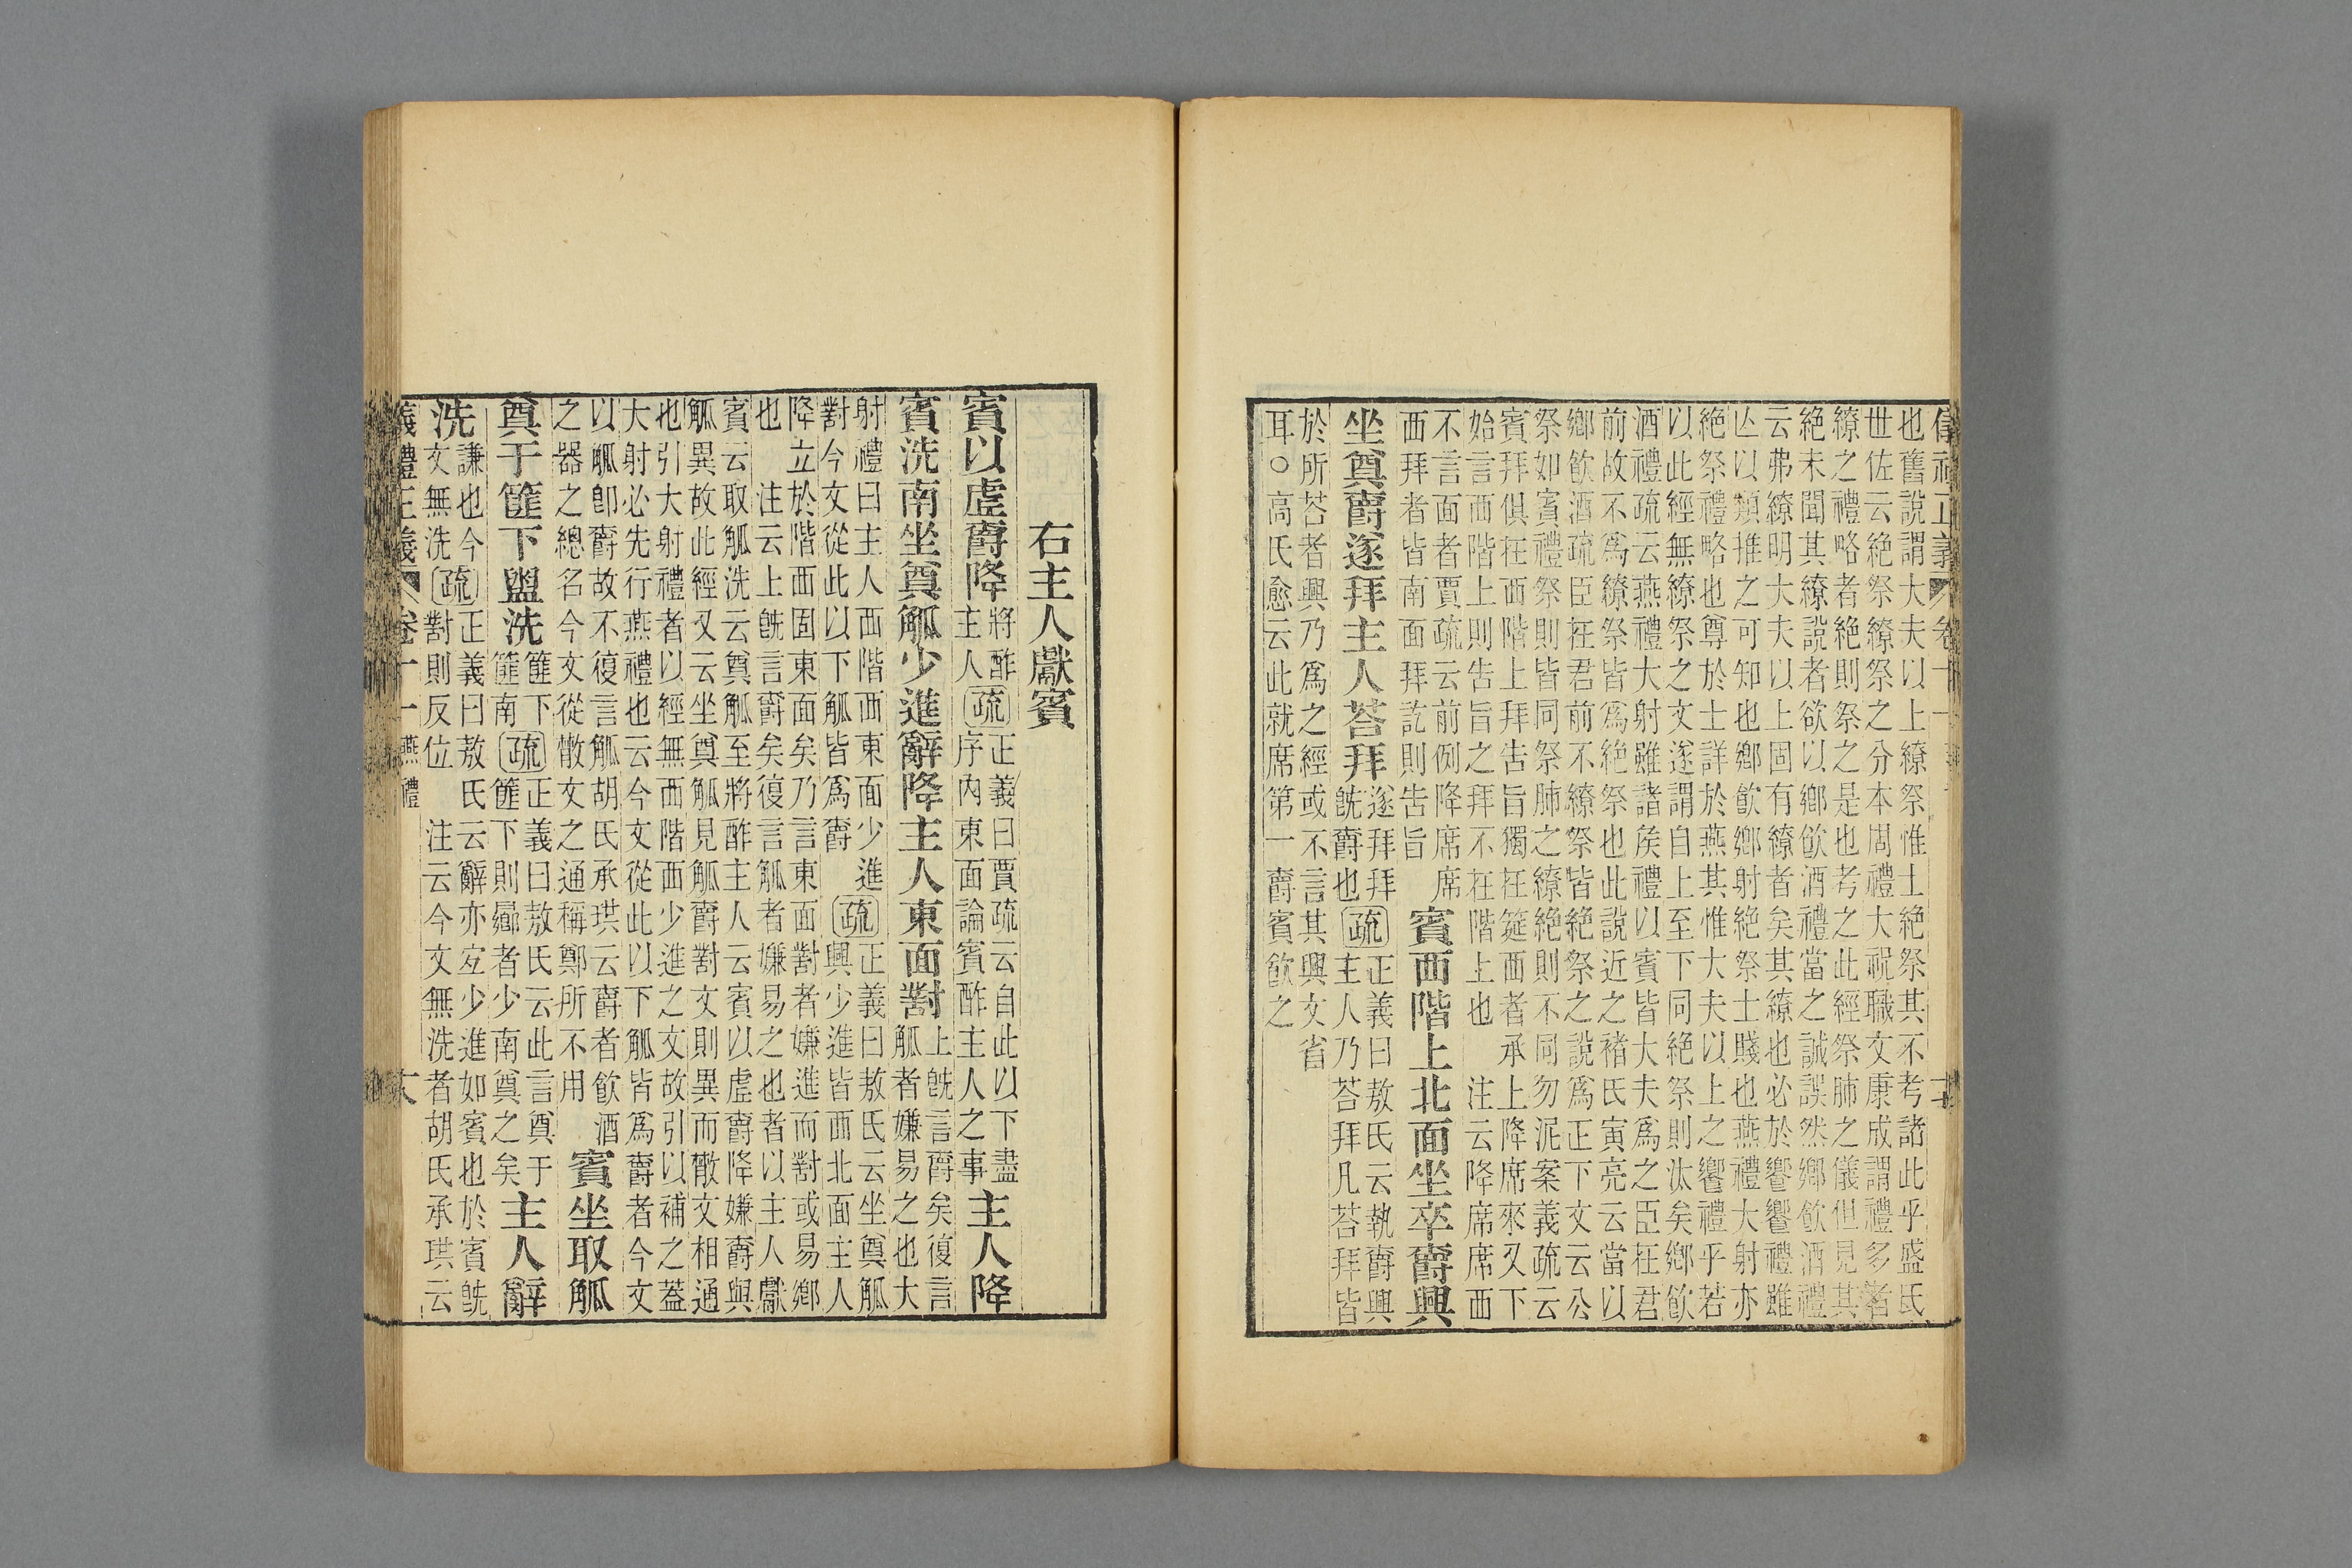 儀禮正義 卷十一
也舊說謂大夫以上繚祭惟士絕祭其不考諸此乎盛氏
世佐云絕祭繚祭之分本周禮大祝職文康成謂禮多者
繚之禮略者絕則祭之是也考之此經祭肺之儀但見其
絕未聞其繚說者欲以鄉飲酒禮當之誠誤然鄉飲酒禮
云弗繚明大夫以上固有繚者矣其繚也必於饗饗禮雖
亾以類推之可知也鄉飲鄉射絕祭士賤也燕禮大射亦
絕祭禮略也尊於士詳於燕其惟大夫以上之饗禮乎若
以此經無繚祭之文遂謂自上至下同絕祭則汰矣鄉飲
酒禮疏云燕禮大射雖諸矦禮以賓皆大夫爲之臣在君
前故不爲繚祭皆爲絕祭也此說近之褚氏寅亮云當以
鄉飲酒疏臣在君前不繚祭皆絕祭之說爲正下文云公
祭如賓禮祭則皆同祭肺之繚絕則不同勿泥案義疏云
賓拜俱在西階上拜告旨獨在筵西者承上降席來又下
始言西階上則告旨之拜不在階上也　注云降席席西
不言面者賈疏云前例降席席
西拜者皆南面拜訖則告旨　賓西階上北面坐卒爵興
坐奠爵遂拜主人荅拜遂拜拜
旣爵也疏正義曰敖氏云執爵興
主人乃荅拜凡荅拜皆
於所荅者興乃爲之經或不言其興文省
耳○高氏愈云此就席第一爵賓飲之
右主人獻賓
賓以虛爵降將酢
主人疏正義曰賈疏云自此以下盡
序內東面論賓酢主人之事主人降
賓洗南坐奠觚少進辭降主人東面對上旣言爵矣復言
觚者嫌易之也大
射禮曰主人西階西東面少進
對今文從此以下觚皆爲爵　疏正義曰敖氏云坐奠觚
興少進皆西北面主人
降立於階西固東面矣乃言東面對者嫌進而對或易鄉
也　注云上旣言爵矣復言觚者嫌易之也者以主人獻
賓云取觚洗云奠觚至將酢主人云賓以虛爵降嫌爵與
觚異故此經又云坐奠觚見觚爵對文則異而散文相通
也引大射禮者以經無西階西少進之文故引以補之蓋
大射必先行燕禮也云今文從此以下觚皆爲爵者今文
以觚卽爵故不復言觚胡氏承珙云爵者飲酒
之器之總名今文從散文之通稱鄭所不用　賓坐取觚
奠于篚下盥洗篚下
篚南疏正義曰敖氏云此言奠于
篚下則曏者少南奠之矣主人辭
洗謙也今
文無洗疏正義曰敖氏云辭亦宜少進如賓也於賓旣
對則反位　注云今文無洗者胡氏承珙云
儀禮正義 卷十一 燕禮